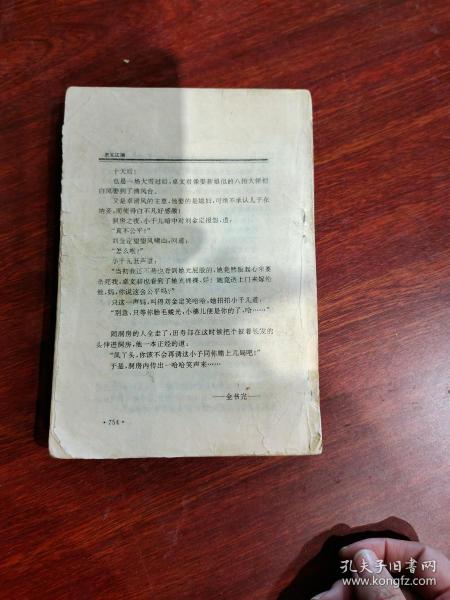 十天后:
也是一场大雪过后,卓文君像娶新娘似的八抬大轿把
白凤娶到了清风台。
又是卓清风的主意,他娶的是媳妇,可绝不承认儿子在
纳妾,而使得白不凡好感激!
洞房之夜,小千儿暗中对刘金定报怨,道:
“真不公平!”
刘金定望望风啸山,问道:
“怎么啦?”
小千儿低声道:
“当初我还不是也看到她光屁股的,她竟然狠起心尔要
杀死我,卓文君也看到了她光裸裸,好!她竟送上门来嫁给
他,妈,你说这会公平吗?”
只这一声妈,叫得刘金定笑哈哈,她拍拍小千儿道:
“别急,只等你胎毛蜕光,小佛儿便是你的了,哈……”
闹洞房的人全走了,田寿却在这时候把个披着长发的
头伸进洞房,他一本正经的道:
“凤丫头,你该不会再请这小子同你赌上几局吧!”
于是,洞房内传出一哈哈笑声来……
——全书完——
·754·
孔夫子旧书网
www.kongfz.com